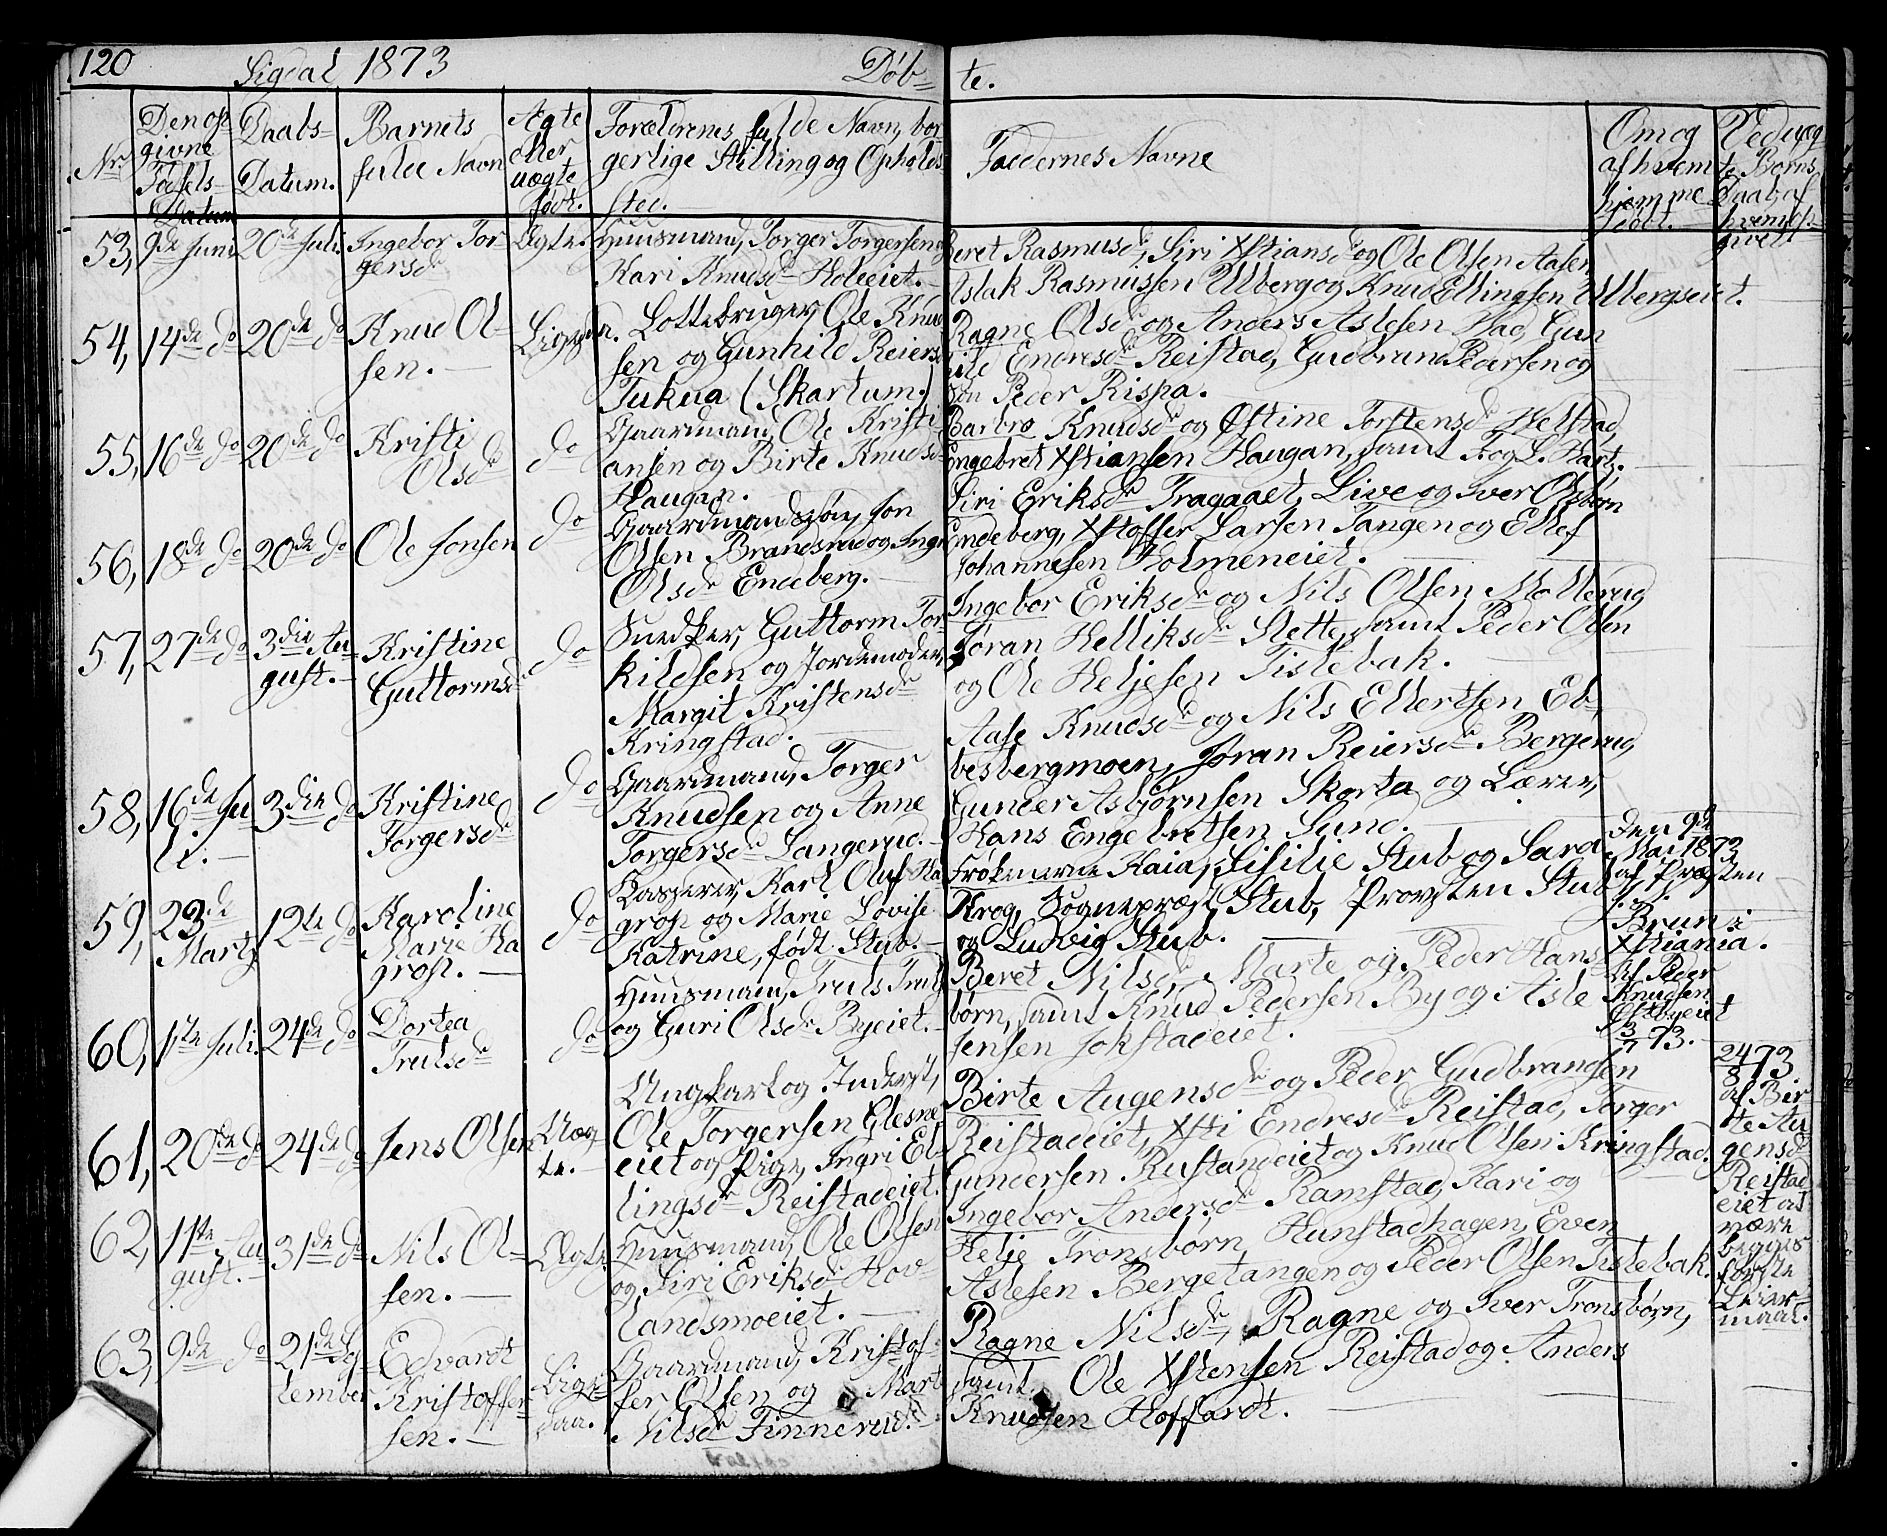 120 Sigdal 1873 Døb- te.
Nr
Den op
givne
Føsels-
Datum
Daabs-
Datum.
Barnets
fulde Navn
Ægte
eller
uægte
født.
Forældrenes fulde Navn, bor
gerlige Stilling og Opholds
sted.
Faddernes Navne
Om og
af hvem
hjemme
døbt.
Ved uæg
te Børns
Daab, af
hvem op-
givet
53, 9de Juni 20de Juli. Ingebor Tor
gersdr
Ægte.
Huusmand, Torger Torgersen og
Kari Knudsdr Holeeiet.
Beret Rasmusdr, Siri Xstiansdr og Ole Olsen Aasen
Aslak Rasmussen Ulberg og Knud Ellingsen Ulbergseiet.
54, 14de do 20de do Knud Ol-
sen.
Ligesaa.
Lottebruger, Ole Knud
sen og Gunhild Reiersdr
Tukua (Skartum.)
Ragne Olsdr og Anders Aslesen Had, Gun
hild Endresdr Reistad, Gudbrand Pedersen og
Søn Peder Rispa.
55, 16de do 20de do Kristi
Olsdr
do
Gaardmand, Ole Kristi
ansen og Birte Knudsdr
Haugan.
Barbro Knudsdr og Østine Torstensdr Helstad,
Engebret Xstiansen Haugan, samt T. og L. Hart.
56, 18de do 20de do Ole Jonsen
do
Gaardmandssøn, Jon
Olsen Brandsrud og Ingri
Olsdr Endeberg.
Siri Eriksdr Tragaaet, Live og Iver Olsbørn
Endeberg, Xstoffer Larsen Tangen og Ellef
Johannesen Holmeneiet.
57, 27de do 3die Au-
gust.
Kristine
Guttormsdr
do
Snedker, Guttorm Tor-
kildsen og Jordemoder,
Margit Kristensdr
Kringstad.
Ingebor Eriksdr og Nils Olsen Mollerud,
Jøran Helliksdr Slette, samt Peder Olsen
og Ole Heljesen Tislebak.
58, 16de Ju
li.
3die do Kristine
Torgersdr
do
Gaardmand, Torger
Knudsen og Anne
Torgersdr Langerud.
Aase Knudsdr og Nils Ellertsen Eb-
besbergmoen, Joran Reiersdr Bergerud,
Gunder Asbjørnsen Skarta og Lærer,
Hans Engebretsen Sund.
59, 23de
Marts
12te do Karoline
Marie Ha
grop.
do
Kasserer, Karl Oluf Ha
grop og Marie Lovise
Katrine, født Stub.
Frøknerne Kaia, Sisilie Stub og Sara
Krog, Sognepræst, Stub, Provsten Stub,
og Ludvig Stub.
Den 9de
Mai 1873
af Præsten
Brun i
Xstiania.
60, 1ste Juli. 24de do Dortea
Trulsdr
do
Huusmand, Truls Truls
og Guri Olsdr Byeiet.
Beret Nilsdr, Marte og Peder Hans-
børn, samt Knud Pedersen By og Asle
Jensen Jokstadeiet.
Af Peder
Knudsen
Østbyeiet
3/7 73.
61, 20de do 24de do Jens Olsen
Uæg
te.
Ungkarl og Inderst,
Ole Torgersen Glesne
eiet og Pige, Ingri El-
lingsdr Reistadeiet.
Birte Augensdr og Peder Gudbrandsen
Reistadeiet, Xsti Endresdr Reistad, Torger
Gundersen Rustandeiet og Knud Olsen Kringstad.
24/8 73
af Bir
te Au
gensdr
Reistad
eiet at
være
begges
første
Leier-
maal.
62, 11te Au
gust.
31de do Nils Ol-
sen.
Ægte.
Huusmand, Ole Olsen
og Siri Eriksdr Hov
landsmoeiet.
Ingebor Andersdr Ramstad, Kari og
Helje Tronsbørn Hunstadhagen, Even
Aslesen Bergetangen og Peder Olsen Tislebak.
63, 9de do 21de Sep
tember
Edvardt
Kristoffer-
sen.
Lige-
saa.
Gaardmand, Kristof-
fer Olsen og Mart
Nilsdr Finnerud.
Ragne Nilsdr, Ragne og Iver Tronsbørn,
samt Ole Xstensen Reistad og Anders
Knudsen Hoffardt.